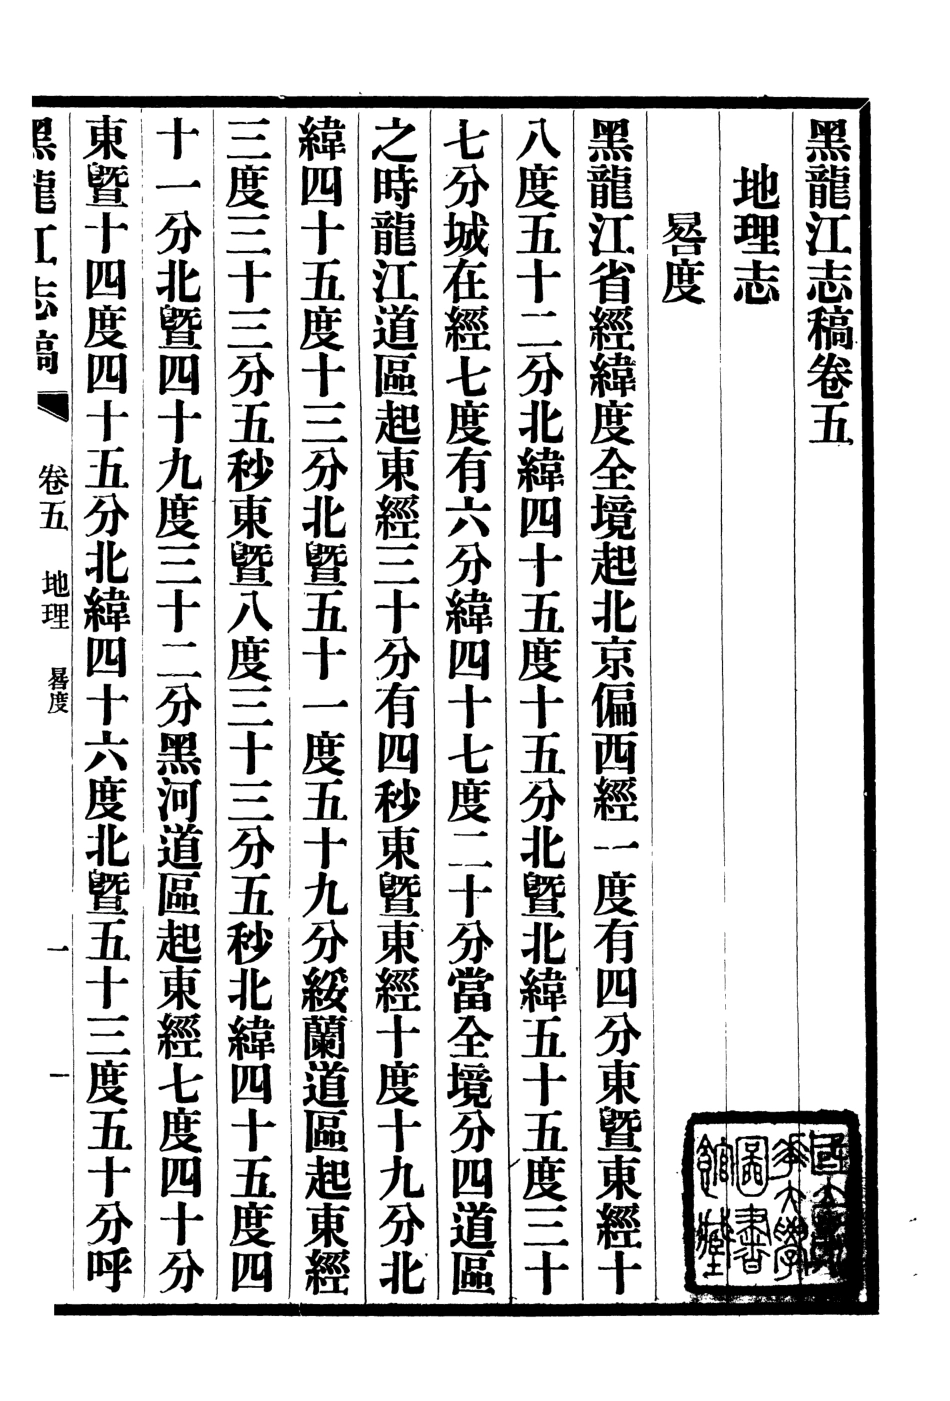 黑龍江志稿卷五
地理志
晷度
黑龍江省經緯度全境起北京偏西經一度有四分東曁東經十
八度五十二分北緯四十五度十五分北曁北緯五十五度三十
七分城在經七度有六分緯四十七度二十分當全境分四道區
之時龍江道區起東經三十分有四秒東曁東經十度十九分北
緯四十五度十三分北曁五十一度五十九分綏蘭道區起東經
三度三十三分五秒東曁八度三十三分五秒北緯四十五度四
十一分北曁四十九度三十二分黑河道區起東經七度四十分
東曁十四度四十五分北緯四十六度北曁五十三度五十分呼
黑龍江志稿 卷五 地理 晷度 一 一
國立清
華大學
圖書
館藏